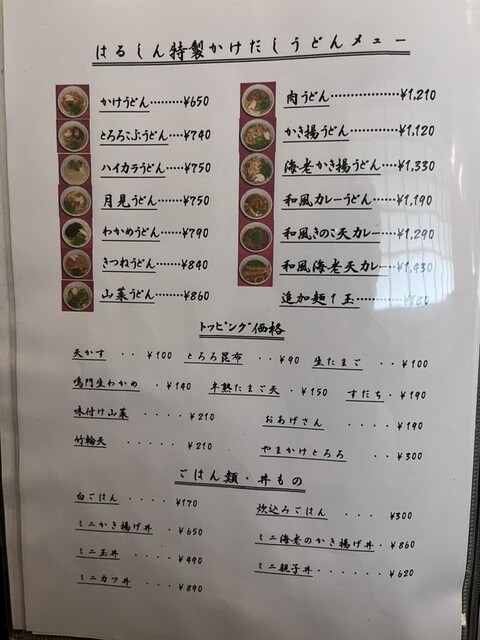 はるしん特製かけだしうどんメニュー
かけうどん………¥650
とろろこぶうどん…¥740
ハイカラうどん……¥750
月見うどん………¥750
わかめうどん……¥790
きつねうどん……¥840
山菜うどん………¥860
肉うどん………………¥1,210
かき揚うどん…………¥1,120
海老かき揚うどん……¥1,330
和風カレーうどん……¥1,190
和風きのこ天カレー…¥1,290
和風海老天カレー…¥1,430
追加麺1玉……¥180
トッピング価格
天かす ・・ ¥100 とろろ昆布 ・・¥90 生たまご ・・¥100
鳴門生わかめ ・¥140 半熟たまご天 ・¥150 すだち・¥190
味付け山菜 ・・・・¥210 おあげさん ・・・・¥190
竹輪天 ・・・・・¥210 やまかけとろろ ・・¥300
ごはん類・丼もの
白ごはん ・・・・¥170 炊込みごはん ・・・ ¥300
ミニかき揚げ丼 ・¥650 ミニ海老のかき揚げ丼・¥860
ミニ玉丼 ・・・・¥490 ミニ親子丼・・・・・・¥620
ミニカツ丼 ・・・¥890